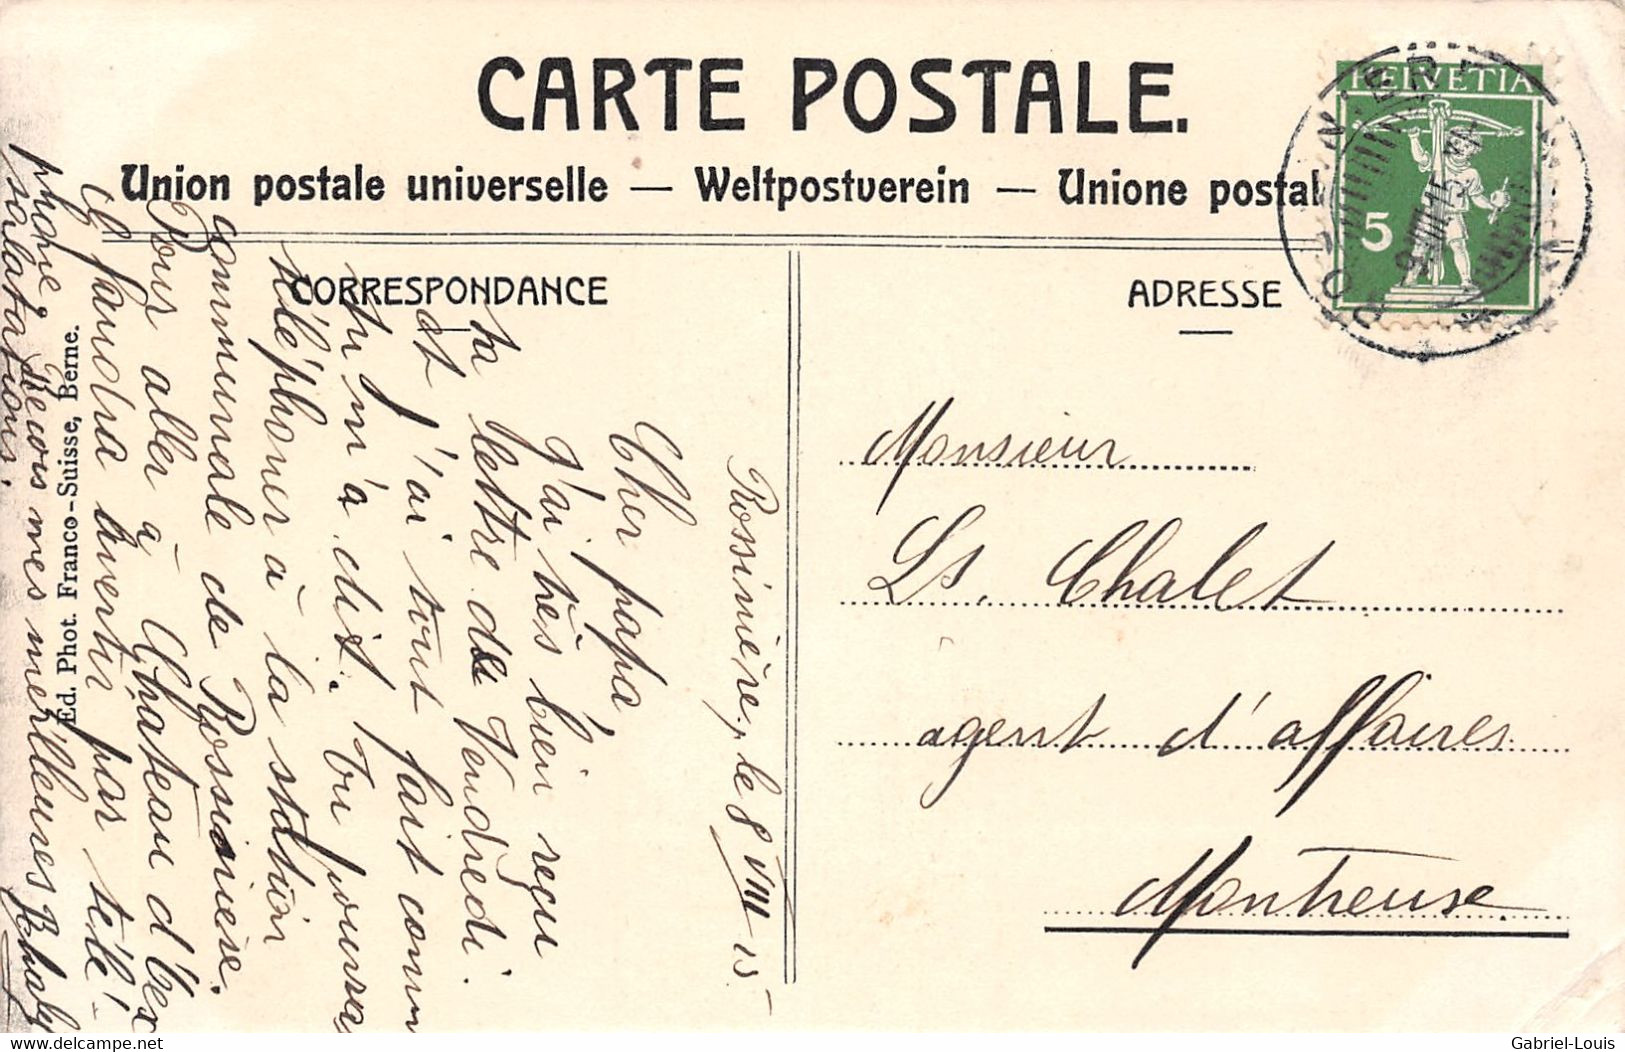 CARTE POSTALE.
Union postale universelle — Weltpostverein — Unione postal
CORRESPONDANCE
ADRESSE
HELVETIA
5
9.VIII.15
Rossinière, le 8 VIII 15
Cher papa,
J'ai très bien reçu
ta lettre de Vendredi.
et j'ai tout fait comm
tu m'a dis. Tu pourras
téléphoner à la station
communale de Rossinière.
Pour aller à Château d'Oex
il faudra avertir par télé-
phone. Recois mes meilleures
salutations.
Ed. Phot. Franco-Suisse, Berne.
Monsieur
Ls. Chalet
agent d'affaires
Montreuse
delcampe.net
Gabriel-Louis